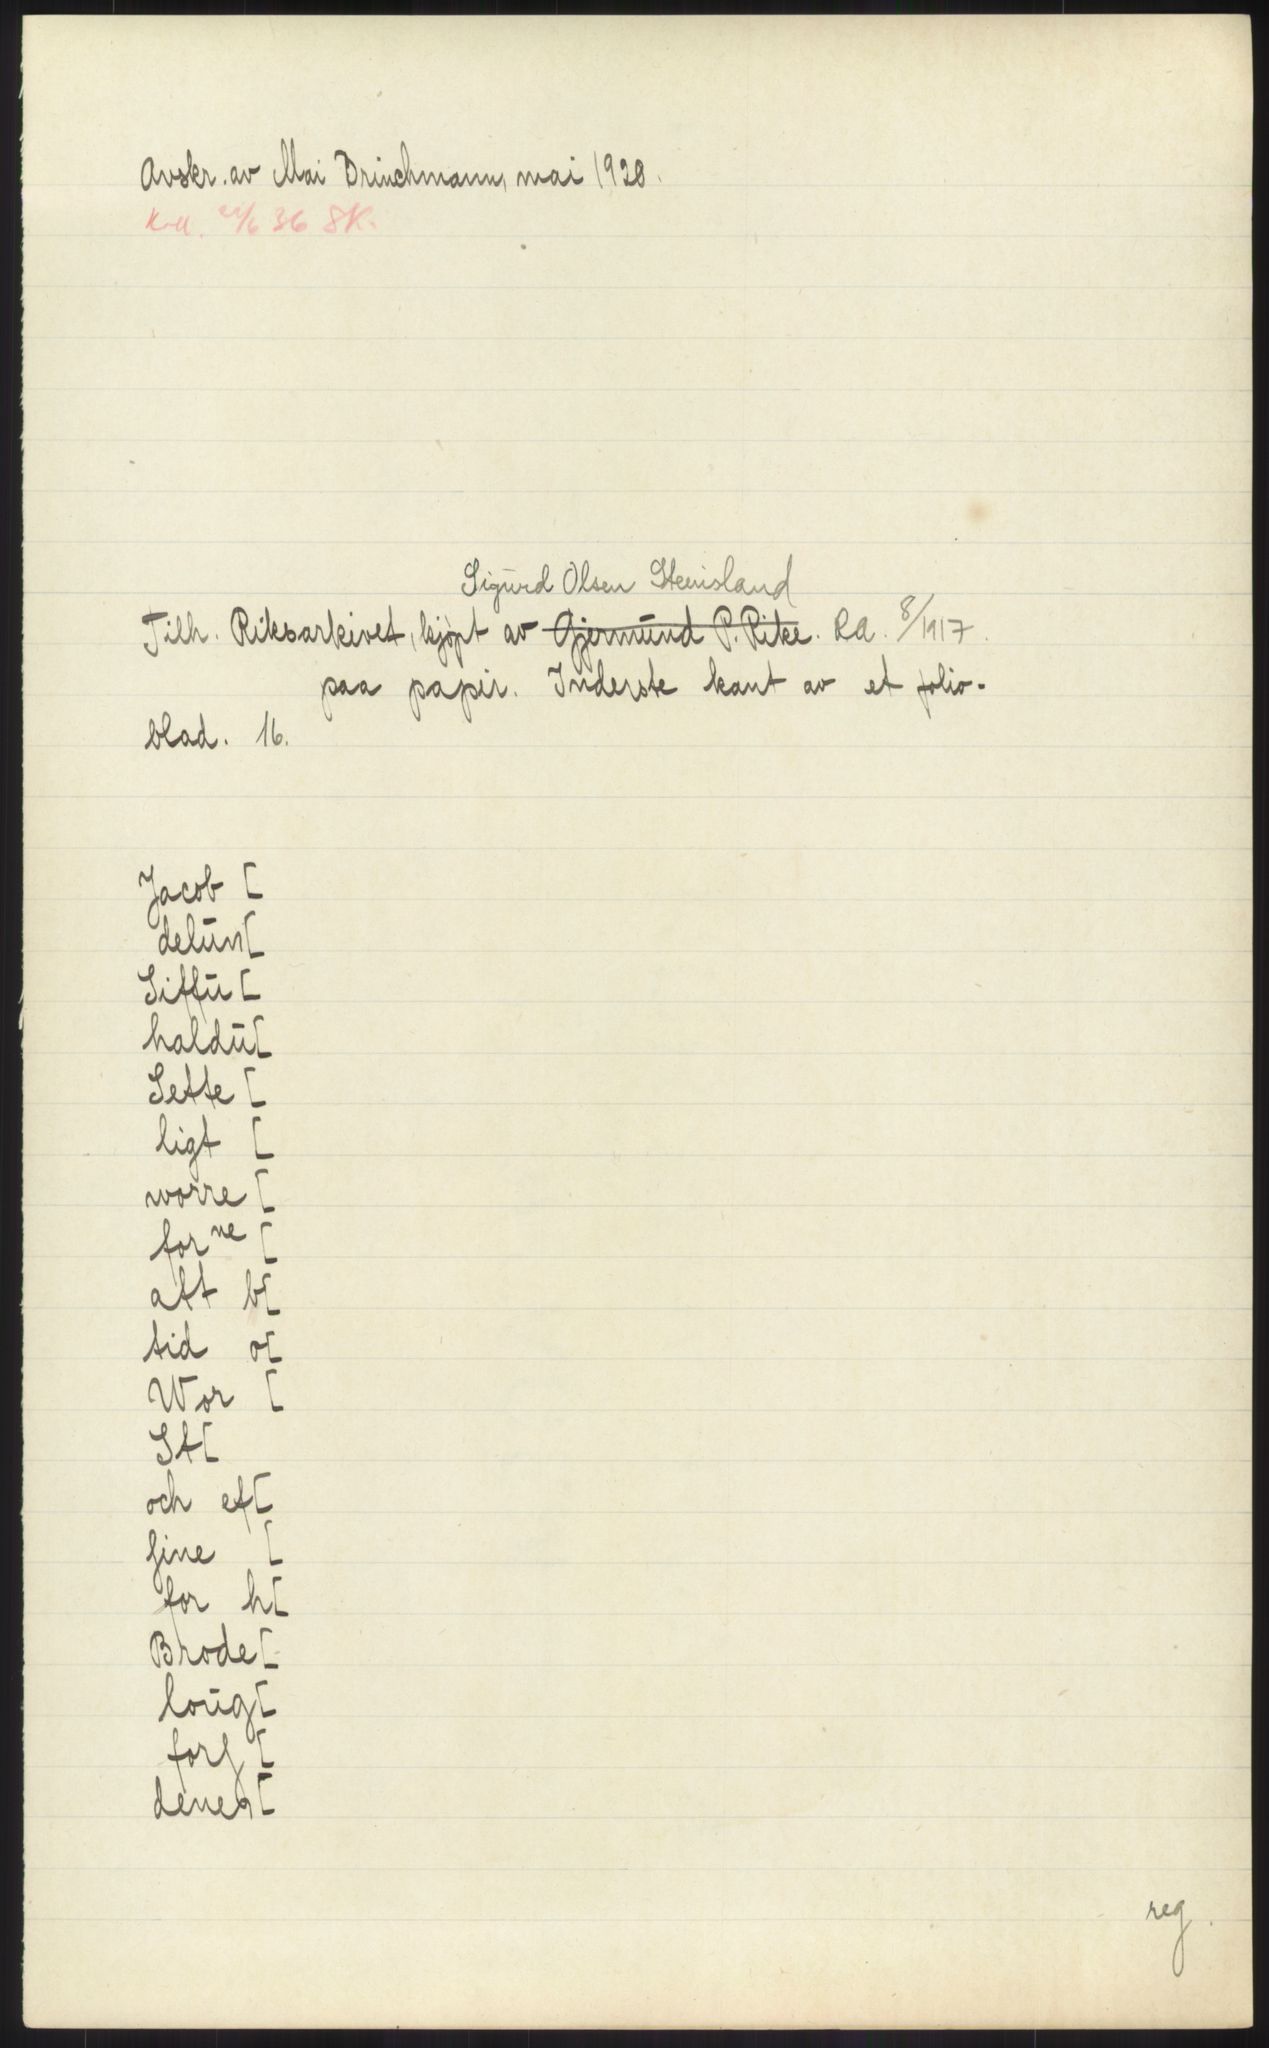 Avskr. av Mai Brinchmann, mai 1920.
Koll. 36 SK.
Sigurd Olsen Steinsland
Tilh. Riksarkivet, kjøpt av Gjermund P. Rike. RA. 8/1917.
paa papir. Inderste kant av et folio-
blad. 16.
Jacob [
delūn[
Siffū[
haldū[
Sette [
ligt [
worre [
forne [
att b[
tid o[
Wor [
St[
och eft[
sine [
for h[
Brode[
loūg[
fors [
denen[
reg.